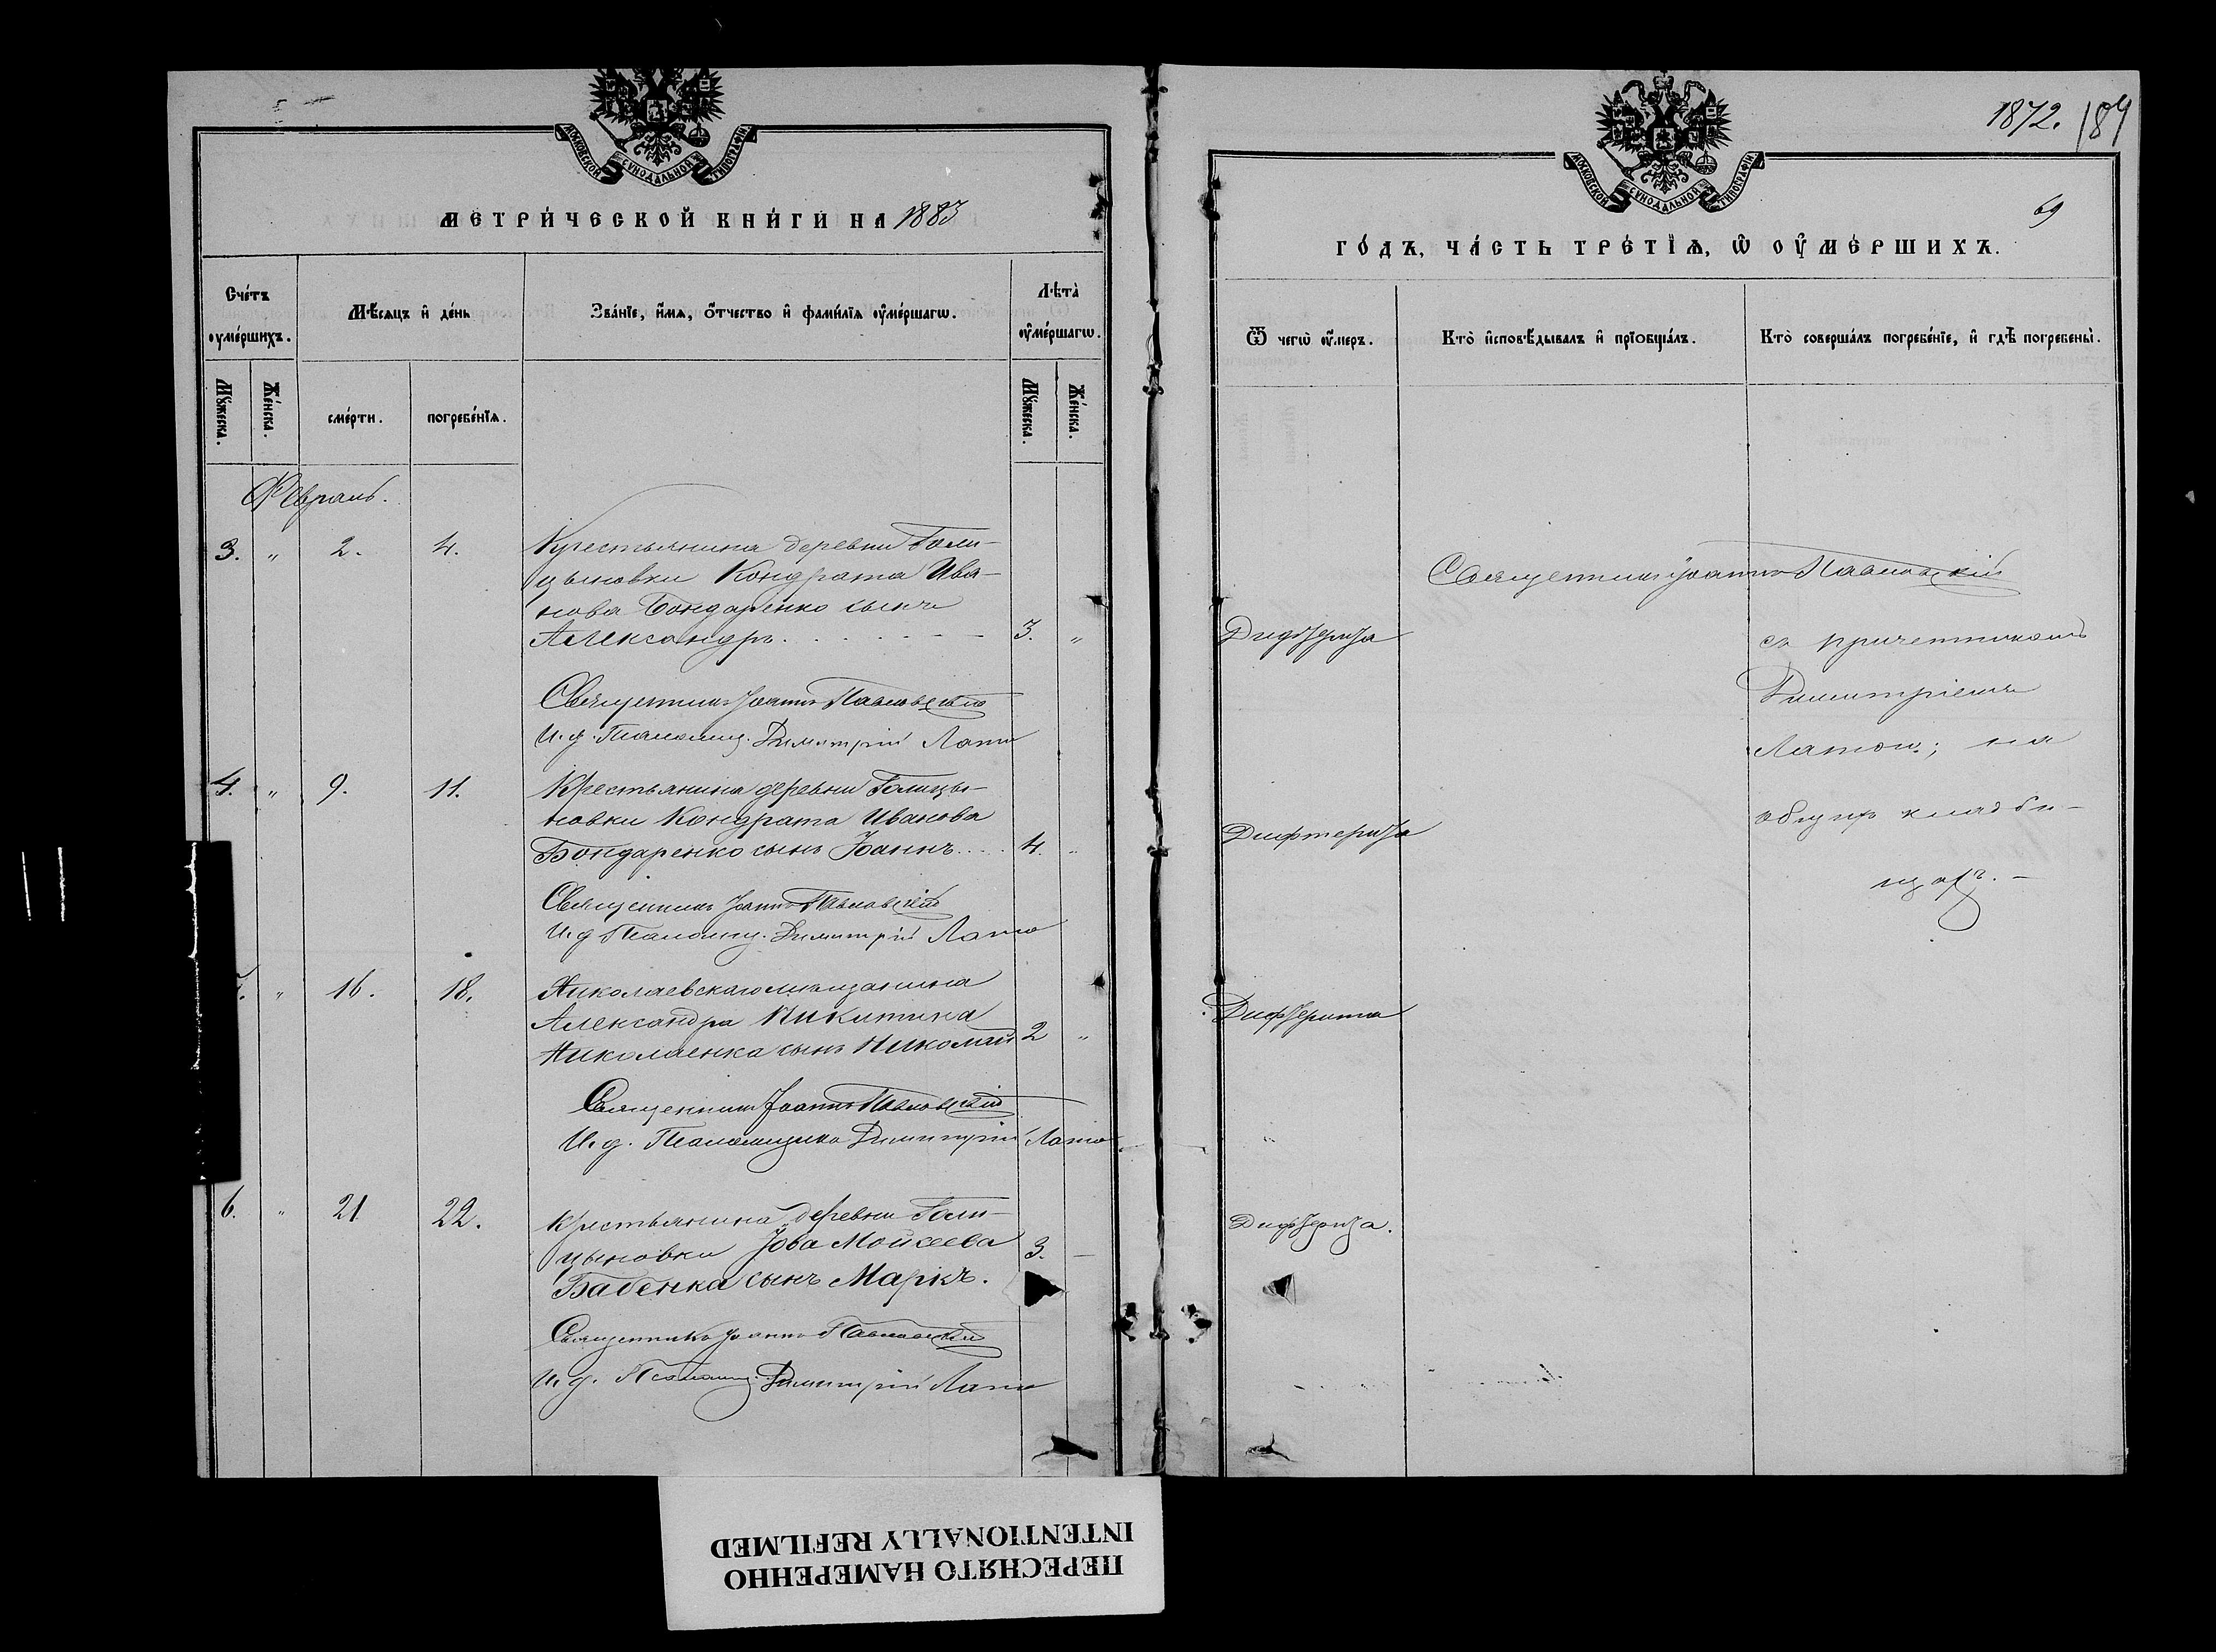 МОСКОВСКОЙ СУНОДАЛЬНОЙ ТИПОГРАФІИ.
МЕТРИ́ЧЕСКОЙ КНИ́ГИ НА 1883
Сче́тъ оумершихъ.
Мѣ́сяцъ и҆ де́нь
Зва́нїе, и҆́мѧ, ѻ҆́тчество и҆ фами́лїѧ оу҆ме́ршагѡ.
Лѣта̀ оу҆ме́ршагѡ.
Мꙋ́жеска.
Же́нска.
сме́рти.
погребе́нїѧ.
Мꙋ́жеска.
Же́нска.
Февраль.
3. " 2. 4. Крестьянина деревни Голи-
цыновки Кондрата Ива-
нова Бондаренко сынъ
Александръ. 3. "
Священникъ Іоаннъ Павловскій
И. д. Псаломщ. Димитрій Лато
4. " 9. 11. Крестьянина деревни Голицы-
новки Кондрата Иванова
Бондаренко сынъ Іоаннъ.... 4. "
Священникъ Іоаннъ Павловскій
И. д. Псаломщ. Димитрій Лато
" 16. 18. Николаевскаго мѣщанина
Александра Никитина
Николаенка сынъ Николай 2 "
Священникъ Іоаннъ Павловскій
И. д. Псаломщика Димитрій Лато
6. " 21 22. Крестьянина деревни Голи-
цыновки Іова Моисеева 3. —
Бабенка сынъ Маркъ.
Священникъ Іоаннъ Павловскій
И. д. Псаломщ. Димитрій Лато
1872. 184
69
МОСКОВСКОЙ СУНОДАЛЬНОЙ ТИПОГРАФІИ.
ГО́ДЪ, ЧА́СТЬ ТРЕ́ТЇѦ, Ѡ҆ ОУ҆МЕ́РШИХЪ.
Ѿ чегѡ̀ оу҆́меръ.
Кто̀ и҆сповѣ́дывалъ и҆ прїѡбща́лъ.
Кто̀ соверша́лъ погребе́нїе, и҆ гдѣ̀ погребены̀.
Священникъ Іоаннъ Павловскій
съ причетникомъ
Димитріемъ
Латою; на
общ. кладби-
Дифтерита
Дифѳерита